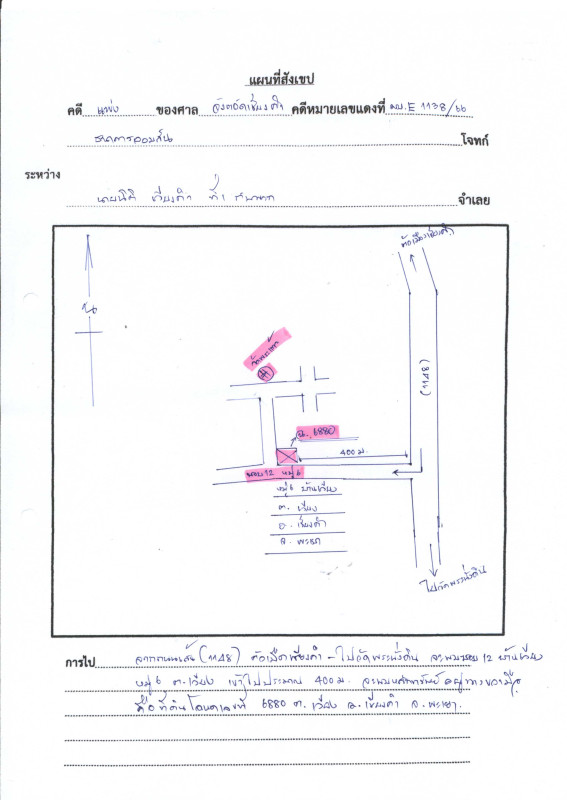 แผนที่สังเขป
คดี แพ่ง ของศาล จังหวัดเชียงคำ คดีหมายเลขแดงที่ ผบ.E 1138/66
ธนาคารออมสิน โจทก์
ระหว่าง
ที่ 1 จำเลย
ตัวเมืองเชียงคำ
N
(1148)
ฉ. 6880
400 ม.
ซอย 12 หมู่ 6
หมู่ 6 บ้านเวียง
ต. เวียง
อ. เชียงคำ
จ. พะเยา
ไปวัดพระนั่งดิน
การไป จากถนนเส้น (1148) ตัวเมืองเชียงคำ - ไปวัดพระนั่งดิน จะพบซอย 12 บ้านเวียง
หมู่ 6 ต. เวียง เข้าไปประมาณ 400 ม. จะพบทรัพย์อยู่ทางขวามือ
คือที่ดินโฉนดเลขที่ 6880 ต. เวียง อ. เชียงคำ จ. พะเยา